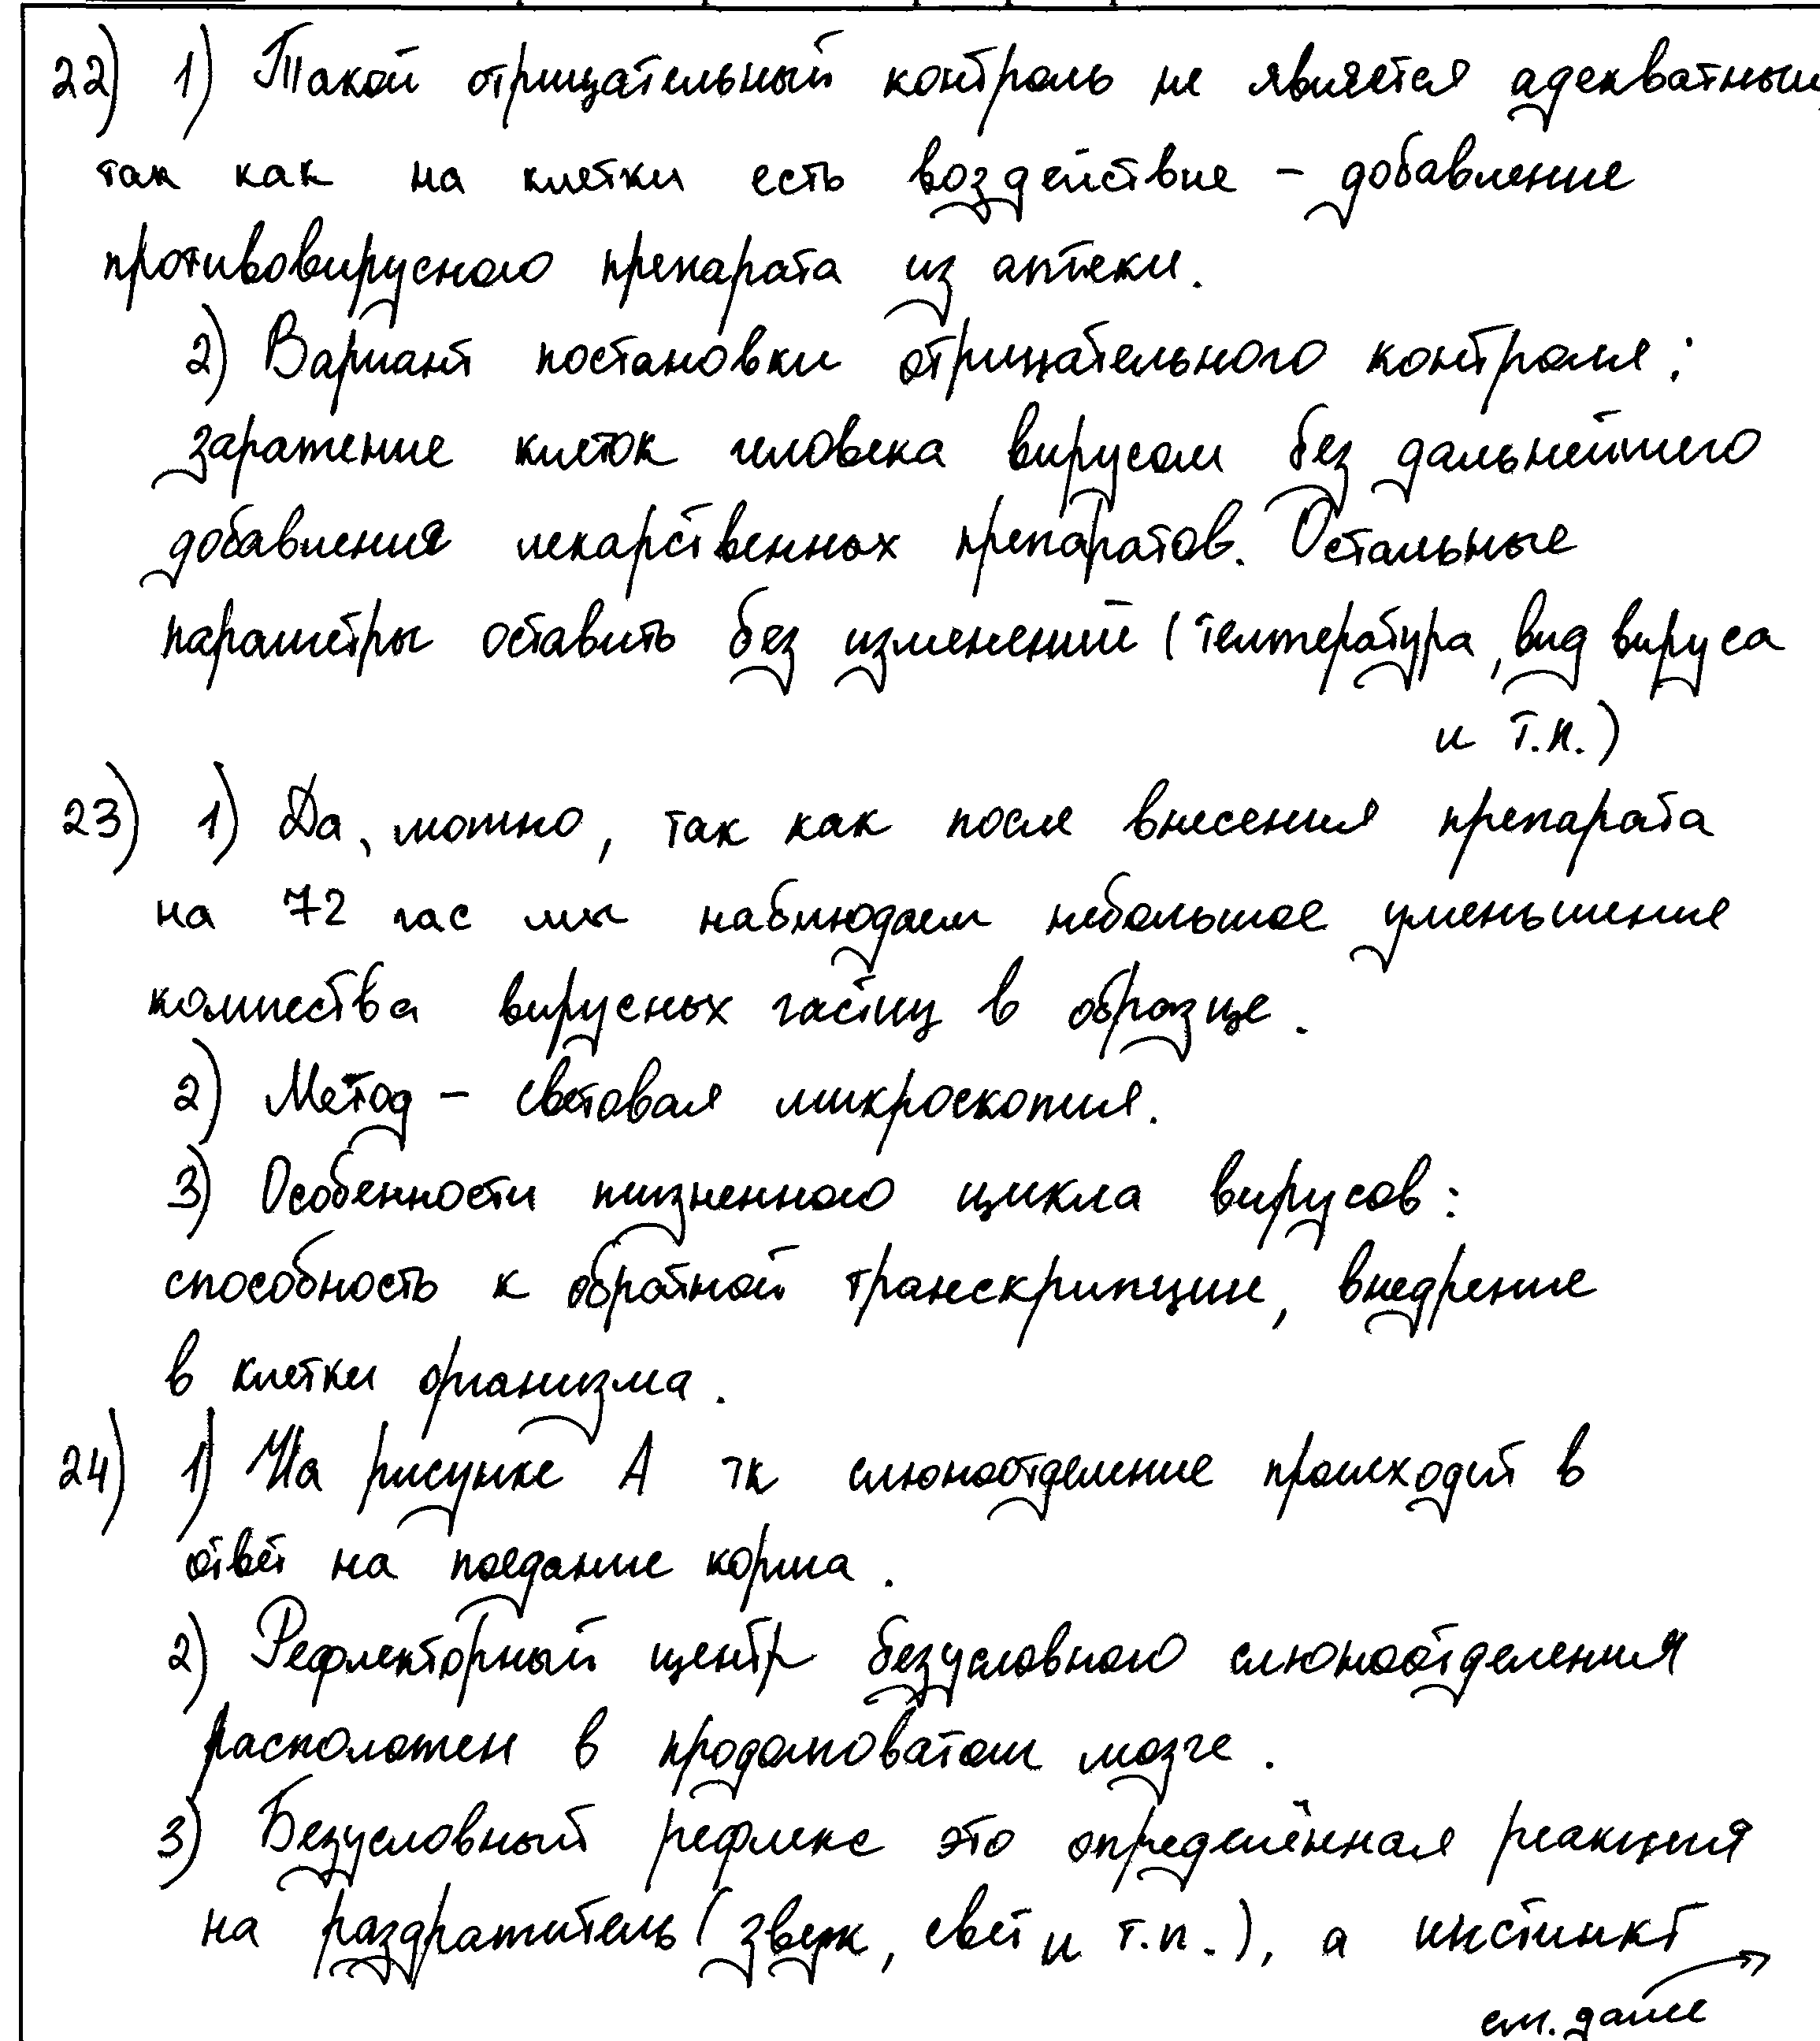 22) 1) Такой отрицательный контроль не является адекватным,
так как на клетки есть воздействие – добавление
противовирусного препарата из аптеки.
2) Вариант постановки отрицательного контроля:
заражение клеток человека вирусом без дальнейшего
добавления лекарственных препаратов. Остальные
параметры оставить без изменений (температура, вид вируса
и т.п.)
23) 1) Да, можно, так как после внесения препарата
на 72 час мы наблюдаем небольшое уменьшение
количества вирусных частиц в образце.
2) Метод – световая микроскопия.
3) Особенности жизненного цикла вирусов:
способность к обратной транскрипции, внедрение
в клетки организма.
24) 1) На рисунке А тк слюноотделение происходит в
ответ на поедание корма.
2) Рефлекторный центр безусловного слюноотделения
расположен в продолговатом мозге.
3) Безусловный рефлекс это определённая реакция
на раздражитель (звук, свет и т.п.), а инстинкт
см. далее